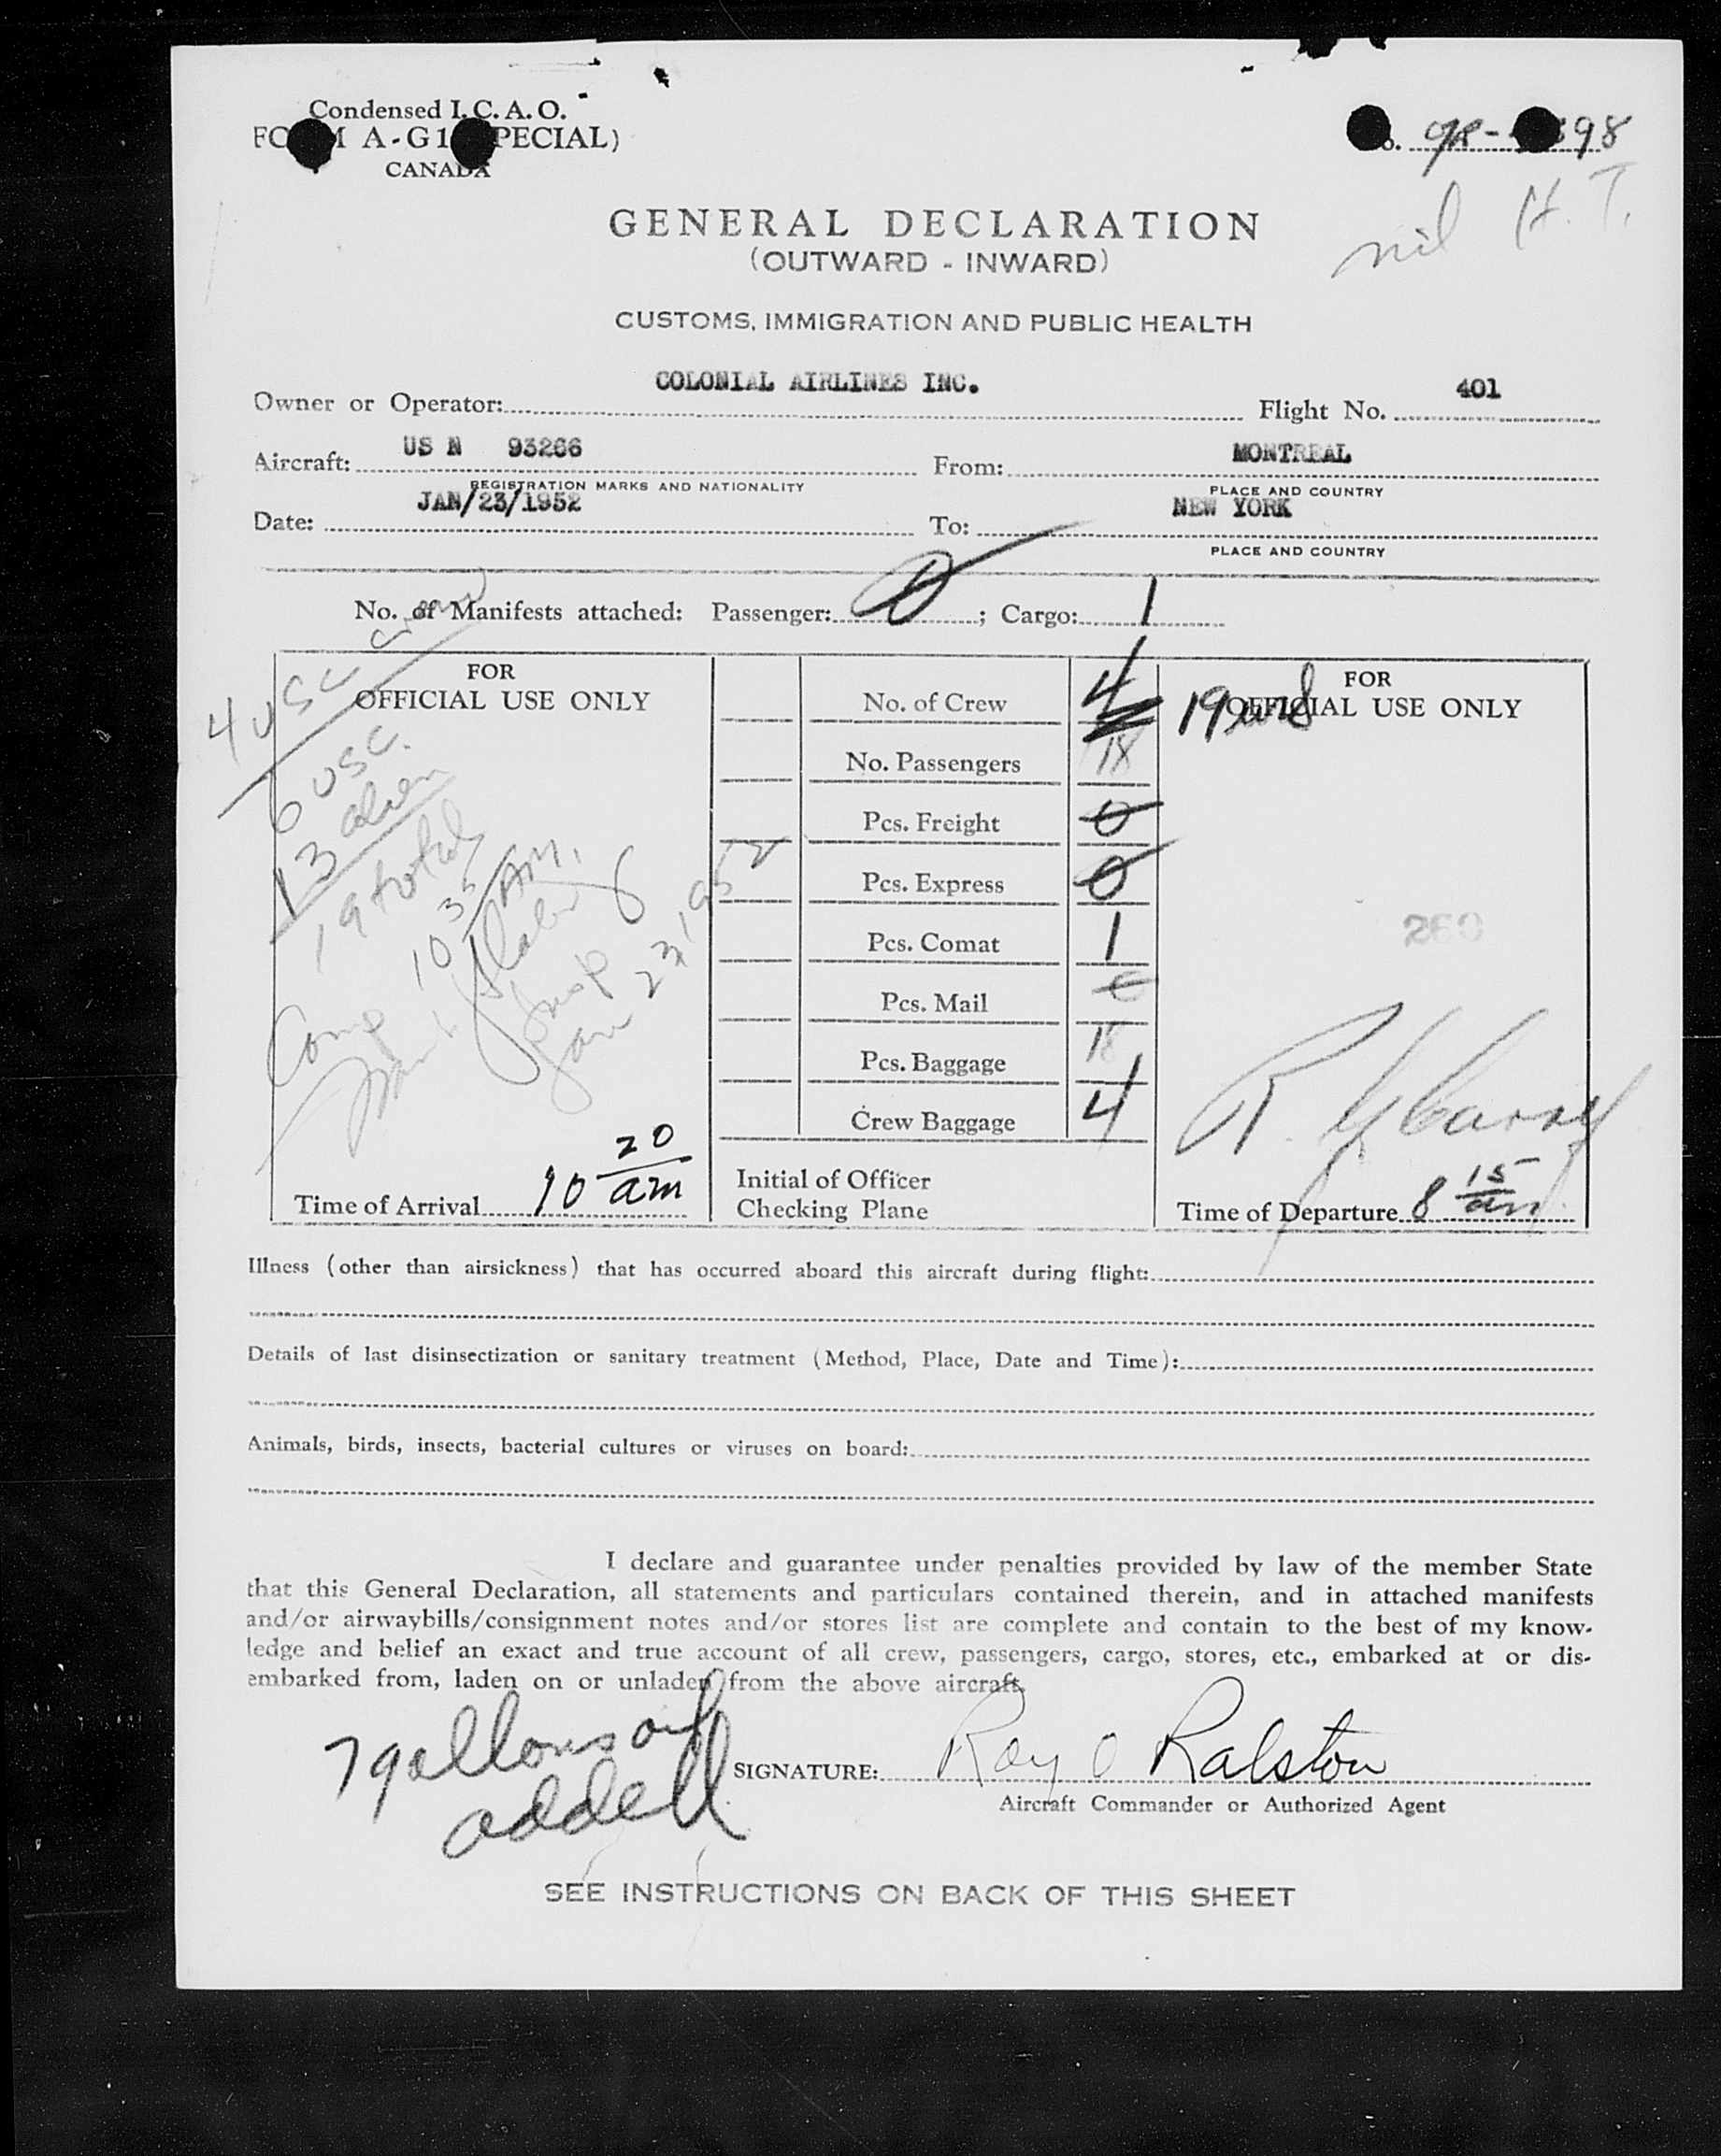 Condensed I.C.A.O.
A-G1
CANADA
98
nil H. T.
GENERAL DECLARATION
(OUTWARD - INWARD)
CUSTOMS, IMMIGRATION AND PUBLIC HEALTH
Owner or Operator: COLONIAL AIRLINES INC. Flight No. 401
Aircraft: US N 93266 From: MONTREAL
REGISTRATION MARKS AND NATIONALITY PLACE AND COUNTRY
Date: JAN/23/1952 To: NEW YORK
PLACE AND COUNTRY
No. of Manifests attached: Passenger: 0; Cargo: 1
FOR
OFFICIAL USE ONLY
4 USC crew
6 USC.
13 alien
19 total
Comp 10 35 AM.
Insp
Jan 23, 1952
Time of Arrival 10 20 am
No. of Crew 4
No. Passengers 18
Pcs. Freight 0
Pcs. Express 0
Pcs. Comat 1
Pcs. Mail 0
Pcs. Baggage 18
Crew Baggage 4
Initial of Officer
Checking Plane
FOR
OFFICIAL USE ONLY
19
260
R.
Time of Departure 8 15 am
Illness (other than airsickness) that has occurred aboard this aircraft during flight:
Details of last disinsectization or sanitary treatment (Method, Place, Date and Time):
Animals, birds, insects, bacterial cultures or viruses on board:
I declare and guarantee under penalties provided by law of the member State
that this General Declaration, all statements and particulars contained therein, and in attached manifests
and/or airwaybills/consignment notes and/or stores list are complete and contain to the best of my know-
ledge and belief an exact and true account of all crew, passengers, cargo, stores, etc., embarked at or dis-
embarked from, laden on or unladen from the above aircraft.
7 gallons oil
added
SIGNATURE: Roy O Ralston
Aircraft Commander or Authorized Agent
SEE INSTRUCTIONS ON BACK OF THIS SHEET